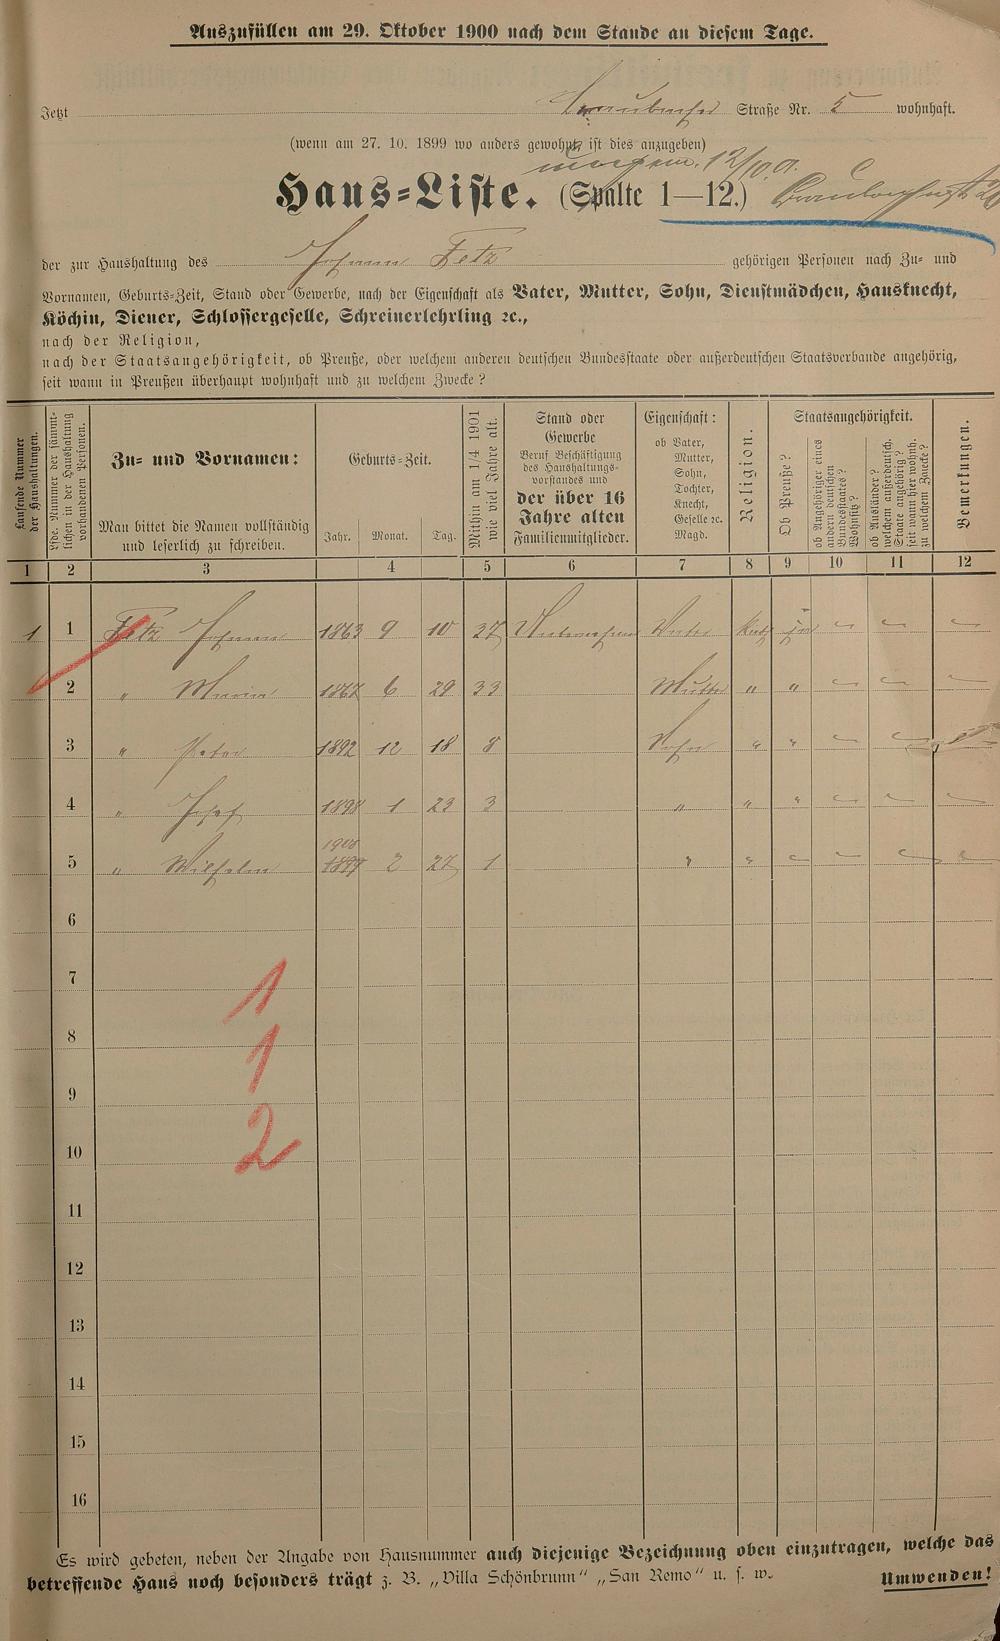 Auszufüllen am 29. Oktober 1900 nach dem Stande an diesem Tage.
Jetzt Straße Nr. 5 wohnhaft.
(wenn am 27. 10. 1899 wo anders gewohnt, ist dies anzugeben)
Haus-Liste. (Spalte 1—12.)
der zur Haushaltung des Johann Fetz gehörigen Personen nach Zu- und
Vornamen, Geburts-Zeit, Stand oder Gewerbe, nach der Eigenschaft als Vater, Mutter, Sohn, Dienstmädchen, Hausknecht,
Köchin, Diener, Schlossergeselle, Schreinerlehrling ꝛc.,
nach der Religion,
nach der Staatsangehörigkeit, ob Preuße, oder welchem anderen deutschen Bundesstaate oder außerdeutschen Staatsverbande angehörig,
seit wann in Preußen überhaupt wohnhaft und zu welchem Zwecke?
Laufende Nummer der Haushaltungen.
Lfde. Nummer der sämmtlichen in der Haushaltung vorhandenen Personen.
Zu- und Vornamen:
Man bittet die Namen vollständig
und leserlich zu schreiben.
Geburts-Zeit.
Jahr. Monat. Tag.
Mithin am 1/4 1901 wie viel Jahre alt.
Stand oder
Gewerbe
Beruf Beschäftigung
des Haushaltungs-
vorstandes und
der über 16
Jahre alten
Familienmitglieder.
Eigenschaft:
ob Vater,
Mutter,
Sohn,
Tochter,
Knecht,
Geselle ꝛc.
Magd.
Religion.
Staatsangehörigkeit.
Ob Preuße?
ob Angehöriger eines andern deutschen Bundesstaates? Wohnsitz?
ob Ausländer? welchem außerdeutsch. Staate angehörig? seit wann hier wohnh. zu welchem Zwecke?
Bemerkungen.
1 2 3 4 5 6 7 8 9 10 11 12
1 1 Fetz Johann 1863 9 10 37 Vater Kath ja
2 " Maria 1867 6 29 33 Mutter " "
3 " Peter 1892 12 18 8 Sohn " "
4 " Josef 1898 1 23 3 " " "
1900
5 " Wilhelm 1899 2 27 1 " "
6
7
1
8
1
9
10
2
11
12
13
14
15
16
Es wird gebeten, neben der Angabe von Hausnummer auch diejenige Bezeichnung oben einzutragen, welche das
betreffende Haus noch besonders trägt z. B. „Villa Schönbrunn" „San Remo" u. s. w.
Umwenden!